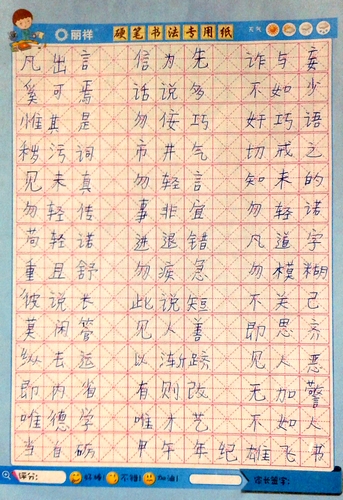 丽祥 硬笔书法专用纸 天气
凡出言 信为先 诈与妄
奚可焉 话说多 不如少
惟其是 勿佞巧 奸巧语
秽污词 市井气 切戒之
见未真 勿轻言 知未的
勿轻传 事非宜 勿轻诺
苟轻诺 进退错 凡道字
重且舒 勿疾急 勿模糊
彼说长 此说短 不关己
莫闲管 见人善 即思齐
纵去远 以渐跻 见人恶
即内省 有则改 无加警
唯德学 唯才艺 不如人
当自砺 甲午年纪雄飞书
评分: